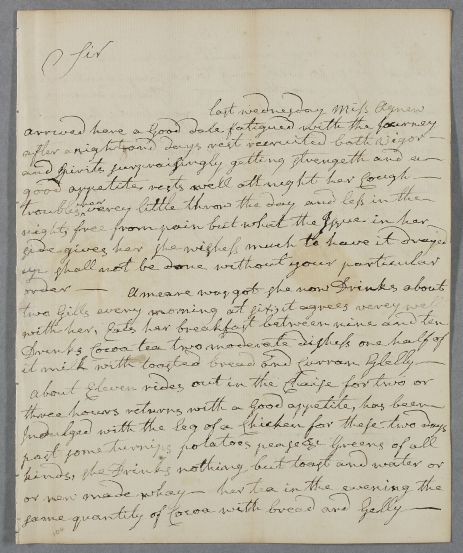 Sir
last wednesday Miss Agnew
arrived here a Good dale fatigued with the Journey
after a night and days rest recruited both Vigor
and spirits surpraisingly getting strength and a
good appetite, rests well att night her Cough
troubles her verey little throw the day and less in the
nights free from pain but what the Issue in her
side gives her she wishess much to have it drayed
up shall not be done without your particular
order — A meare was got she now Drinks about
two Gills every morning at six it agrees verey well
with her, Eats her breakfast between nine and ten
Drinks Cocoa tea two moderate dishess one half of
it milk with toasted bread and Curran Gelly —
About Eleven rides out in the Chaise for two or
three hours returns with a Good appetite, has been
Indulged with the leg of a Chicken for these two days
past some turnips potatoes pease & Greens of all
kinds, she Drinks nothing but toast and water or
or new made whay — her tea in the evening the
same quantity of Cocoa with bread and Gelly —